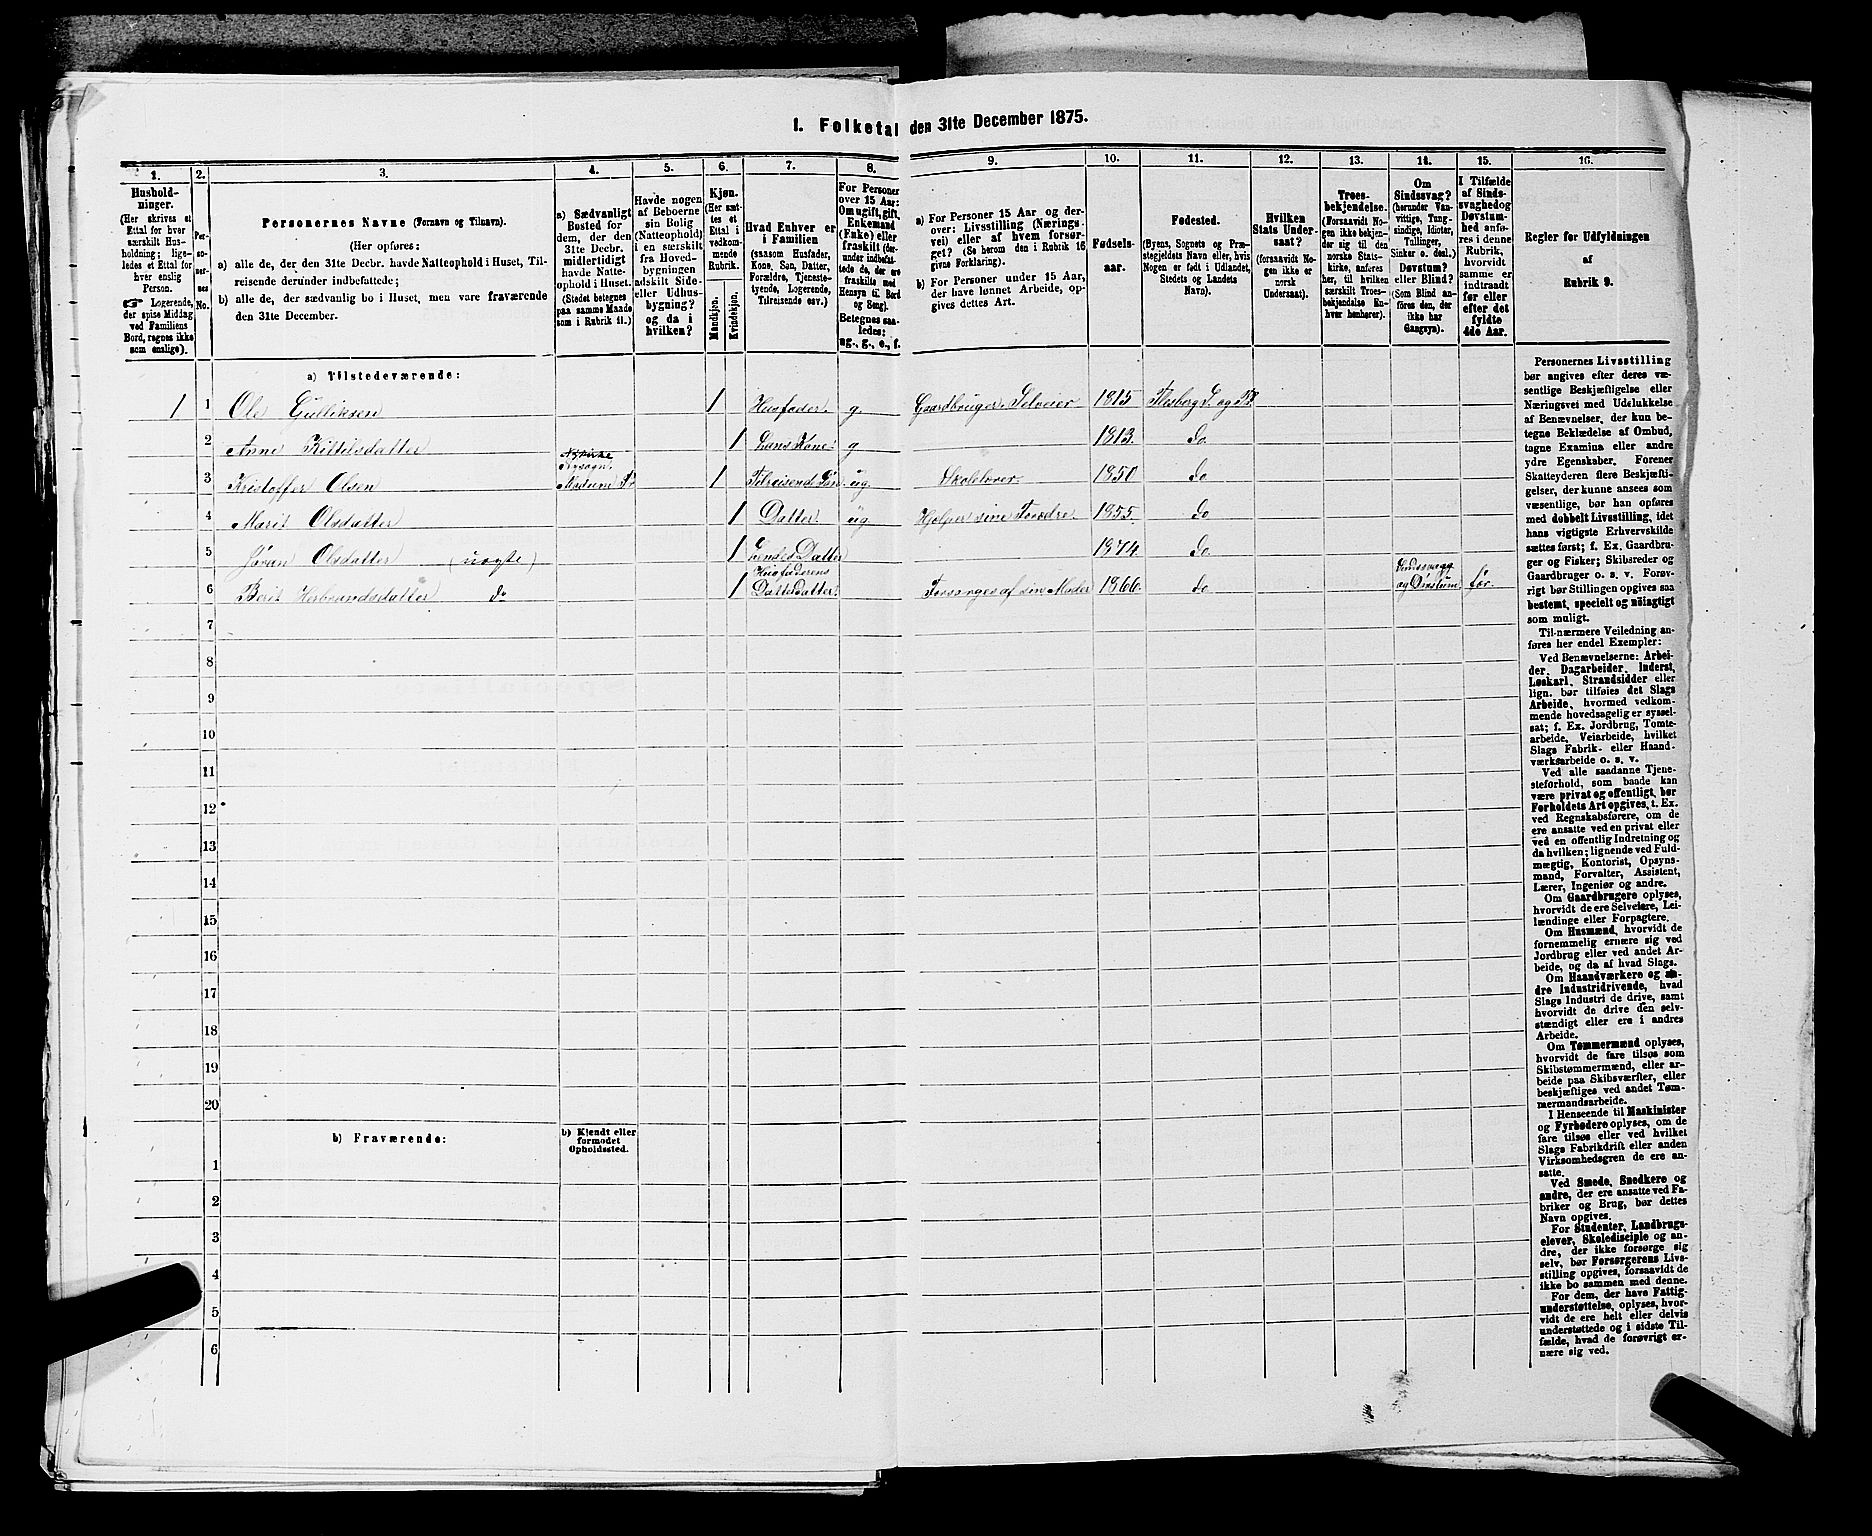 1. Folketal den 31te December 1875.
1.
2.
3.
4.
5.
6.
7.
8.
9.
10.
11.
12.
13.
14.
15.
16.
Hushold-
ninger.
(Her skrives et
Ettal for hver
særskilt Hus-
holdning; lige-
ledes et Ettal for
hver enslig
Person.
☞ Logerende,
der spise Middag
ved Familiens
Bord, regnes ikke
som enslige).
Per-
soner-
nes
No.
Personernes Navne (Fornavn og Tilnavn).
(Her opføres:
a) alle de, der den 31te Decbr. havde Natteophold i Huset, Til-
reisende derunder indbefattede;
b) alle de, der sædvanlig bo i Huset, men vare fraværende
den 31te December.
a) Sædvanligt
Bosted for
dem, der den
31te Decbr.
midlertidigt
havde Natte-
ophold i Huset.
(Stedet betegnes
paa samme Maade
som i Rubrik 11.)
Havde nogen
af Beboerne
sin Bolig
(Natteophold)
i en særskilt
fra Hoved-
bygningen
adskilt Side-
eller Udhus-
bygning?
og da i
hvilken?
Kjøn.
(Her sæt-
tes et
Ettal i
vedkom-
mende
Rubrik.
Mandkjøn.
Kvindekjøn.
Hvad Enhver er
i Familien
(saasom Husfader,
Kone, Søn, Datter,
Forældre, Tjeneste-
tyende, Logerende,
Tilreisende osv.)
For Personer
over 15 Aar:
Om ugift, gift,
Enkemand
(Enke) eller
fraskilt (der-
under indbefat-
tede de, der ere
fraskilte med
Hensyn til Bord
og Seng).
Betegnes saa-
ledes:
ug., g., e., f.
a) For Personer 15 Aar og der-
over: Livsstilling (Nærings-
vei) eller af hvem forsør-
get? (Se herom den i Rubrik 16
givne Forklaring).
b) For Personer under 15 Aar,
der have lønnet Arbeide, op-
gives dettes Art.
Fødsels-
aar.
Fødested.
(Byens, Sognets og Præ-
stegjeldets Navn eller, hvis
Nogen er født i Udlandet,
Stedets og Landets
Navn).
Hvilken
Stats Under-
saat?
(forsaavidt No-
gen ikke er
norsk
Undersaat).
Troes-
bekjendelse.
(Forsaavidt No-
gen ikke bekjen-
der sig til den
norske Stats-
kirke, anføres
her, til hvilken
særskilt Troes-
bekjendelse En-
hver henhører).
Om
Sindssvag?
(herunder Van-
vittige, Tung-
sindige, Idioter,
Tullinger,
Sinker o. desl.)
Døvstum?
eller Blind?
(Som Blind an-
føres den, der
ikke har
Gangsyn).
I Tilfælde
af Sinds-
svaghed og
Døvstum-
hed anfø-
res i denne
Rubrik,
hvorvidt
samme er
indtraadt
før eller
efter det
fyldte
4de Aar.
Regler for Udfyldningen
af
Rubrik 9.
a) Tilstedeværende:
1 1 Ole Gulliksen 1 Husfader. g. Gaardbruger. Selveier 1815 Flesberg S. og Pr.
2 Anne Kittilsdatter 1 Hans Kone. g 1813. do
3 Kristoffer Olsen Modum Pr 1 Tilreisende Søn ug. Skolelærer. 1850 do
4 Marit Olsdatter 1 Datter. ug. Hjelper sine Forældre. 1855. do
5 Jøran Olsdatter (uægte) 1 Datter 1874. do
6 Berit Herbrandsdatter do 1 Husfaderens Datterdatter. Forsørges af sin Moder 1866. do Sindssvag og Døvstum før.
7
8
9
10
11
12
13
14
15
16
17
18
19
20
b) Fraværende:
b) Kjendt eller
formodet
Opholdssted.
1
2
3
4
5
6
Personernes Livsstilling
bør angives efter deres væ-
sentlige Beskjæftigelse eller
Næringsvei med Udelukkelse
af Benævnelser, der kun be-
tegne Beklædelse af Ombud,
tagne Examina eller andre
ydre Egenskaber. Forener
Skatteyderen flere Beskjæfti-
gelser, der kunne ansees som
væsentlige, bør han opføres
med dobbelt Livsstilling, idet
hans vigtigste Erhvervskilde
sættes først; f. Ex. Gaardbru-
ger og Fisker; Skibsreder og
Gaardbruger o. s. v. Forøv-
rigt bør Stillingen opgives saa
bestemt, specielt og nöiagtigt
som muligt.
Til nærmere Veiledning an-
føres her endel Exempler:
Ved Benævnelserne: Arbei-
der, Dagarbeider, Inderst,
Løskarl, Strandsidder eller
lign. bør tilføies det Slags
Arbeide, hvormed vedkom-
mende hovedsagelig er syssel-
sat; f. Ex. Jordbrug, Tomte-
arbeide, Veiarbeide, hvilket
Slags Fabrik- eller Haand-
værksarbeide o. s. v.
Ved alle saadanne Tjene-
steforhold, som baade kan
være privat og offentligt, bør
Forholdets Art opgives, t. Ex.
ved Regnskabsførere, om de
ere ansatte ved en privat eller
ved en offentlig Indretning og
da hvilken; lignende ved Fuld-
mægtig, Kontorist, Opsyns-
mand, Forvalter, Assistent,
Lærer, Ingeniør og andre.
Om Gaardbrugere oplyses,
hvorvidt de ere Selveiere, Lei-
lændinge eller Forpagtere.
Om Husmænd, hvorvidt de
fornemmelig ernære sig ved
Jordbrug eller ved andet Ar-
beide, og da af hvad Slags.
Om Haandværkere og an-
dre Industridrivende, hvad
Slags Industri de drive, samt
hvorvidt de drive den selv-
stændigt eller ere i andres
Arbeide.
Om Tømmermænd oplyses,
hvorvidt de fare tilsøs som
Skibstømmermænd, eller ar-
beide paa Skibsværfter, eller
beskjæftiges ved andet Tøm-
mermandsarbeide.
I Henseende til Maskinister
og Fyrbødere oplyses, om de
fare tilsøs eller ved hvilket
Slags Fabrikdrift eller anden
Virksomhedsgren de ere an-
satte.
Ved Smede, Snedkere og
andre, der ere ansatte ved Fa-
briker og Brug, bør dettes
Navn opgives.
For Studenter, Landbrugs-
elever, Skoledisciple og an-
dre, der ikke forsørge sig
selv, bør Forsørgerens Livs-
stilling opgives, forsaavidt de
ikke bo sammen med denne.
For dem, der have Fattig-
understøttelse, oplyses, hvor-
vidt de ere helt eller delvis
understøttede og i sidste Til-
fælde, hvad de forøvrigt er-
nære sig ved.